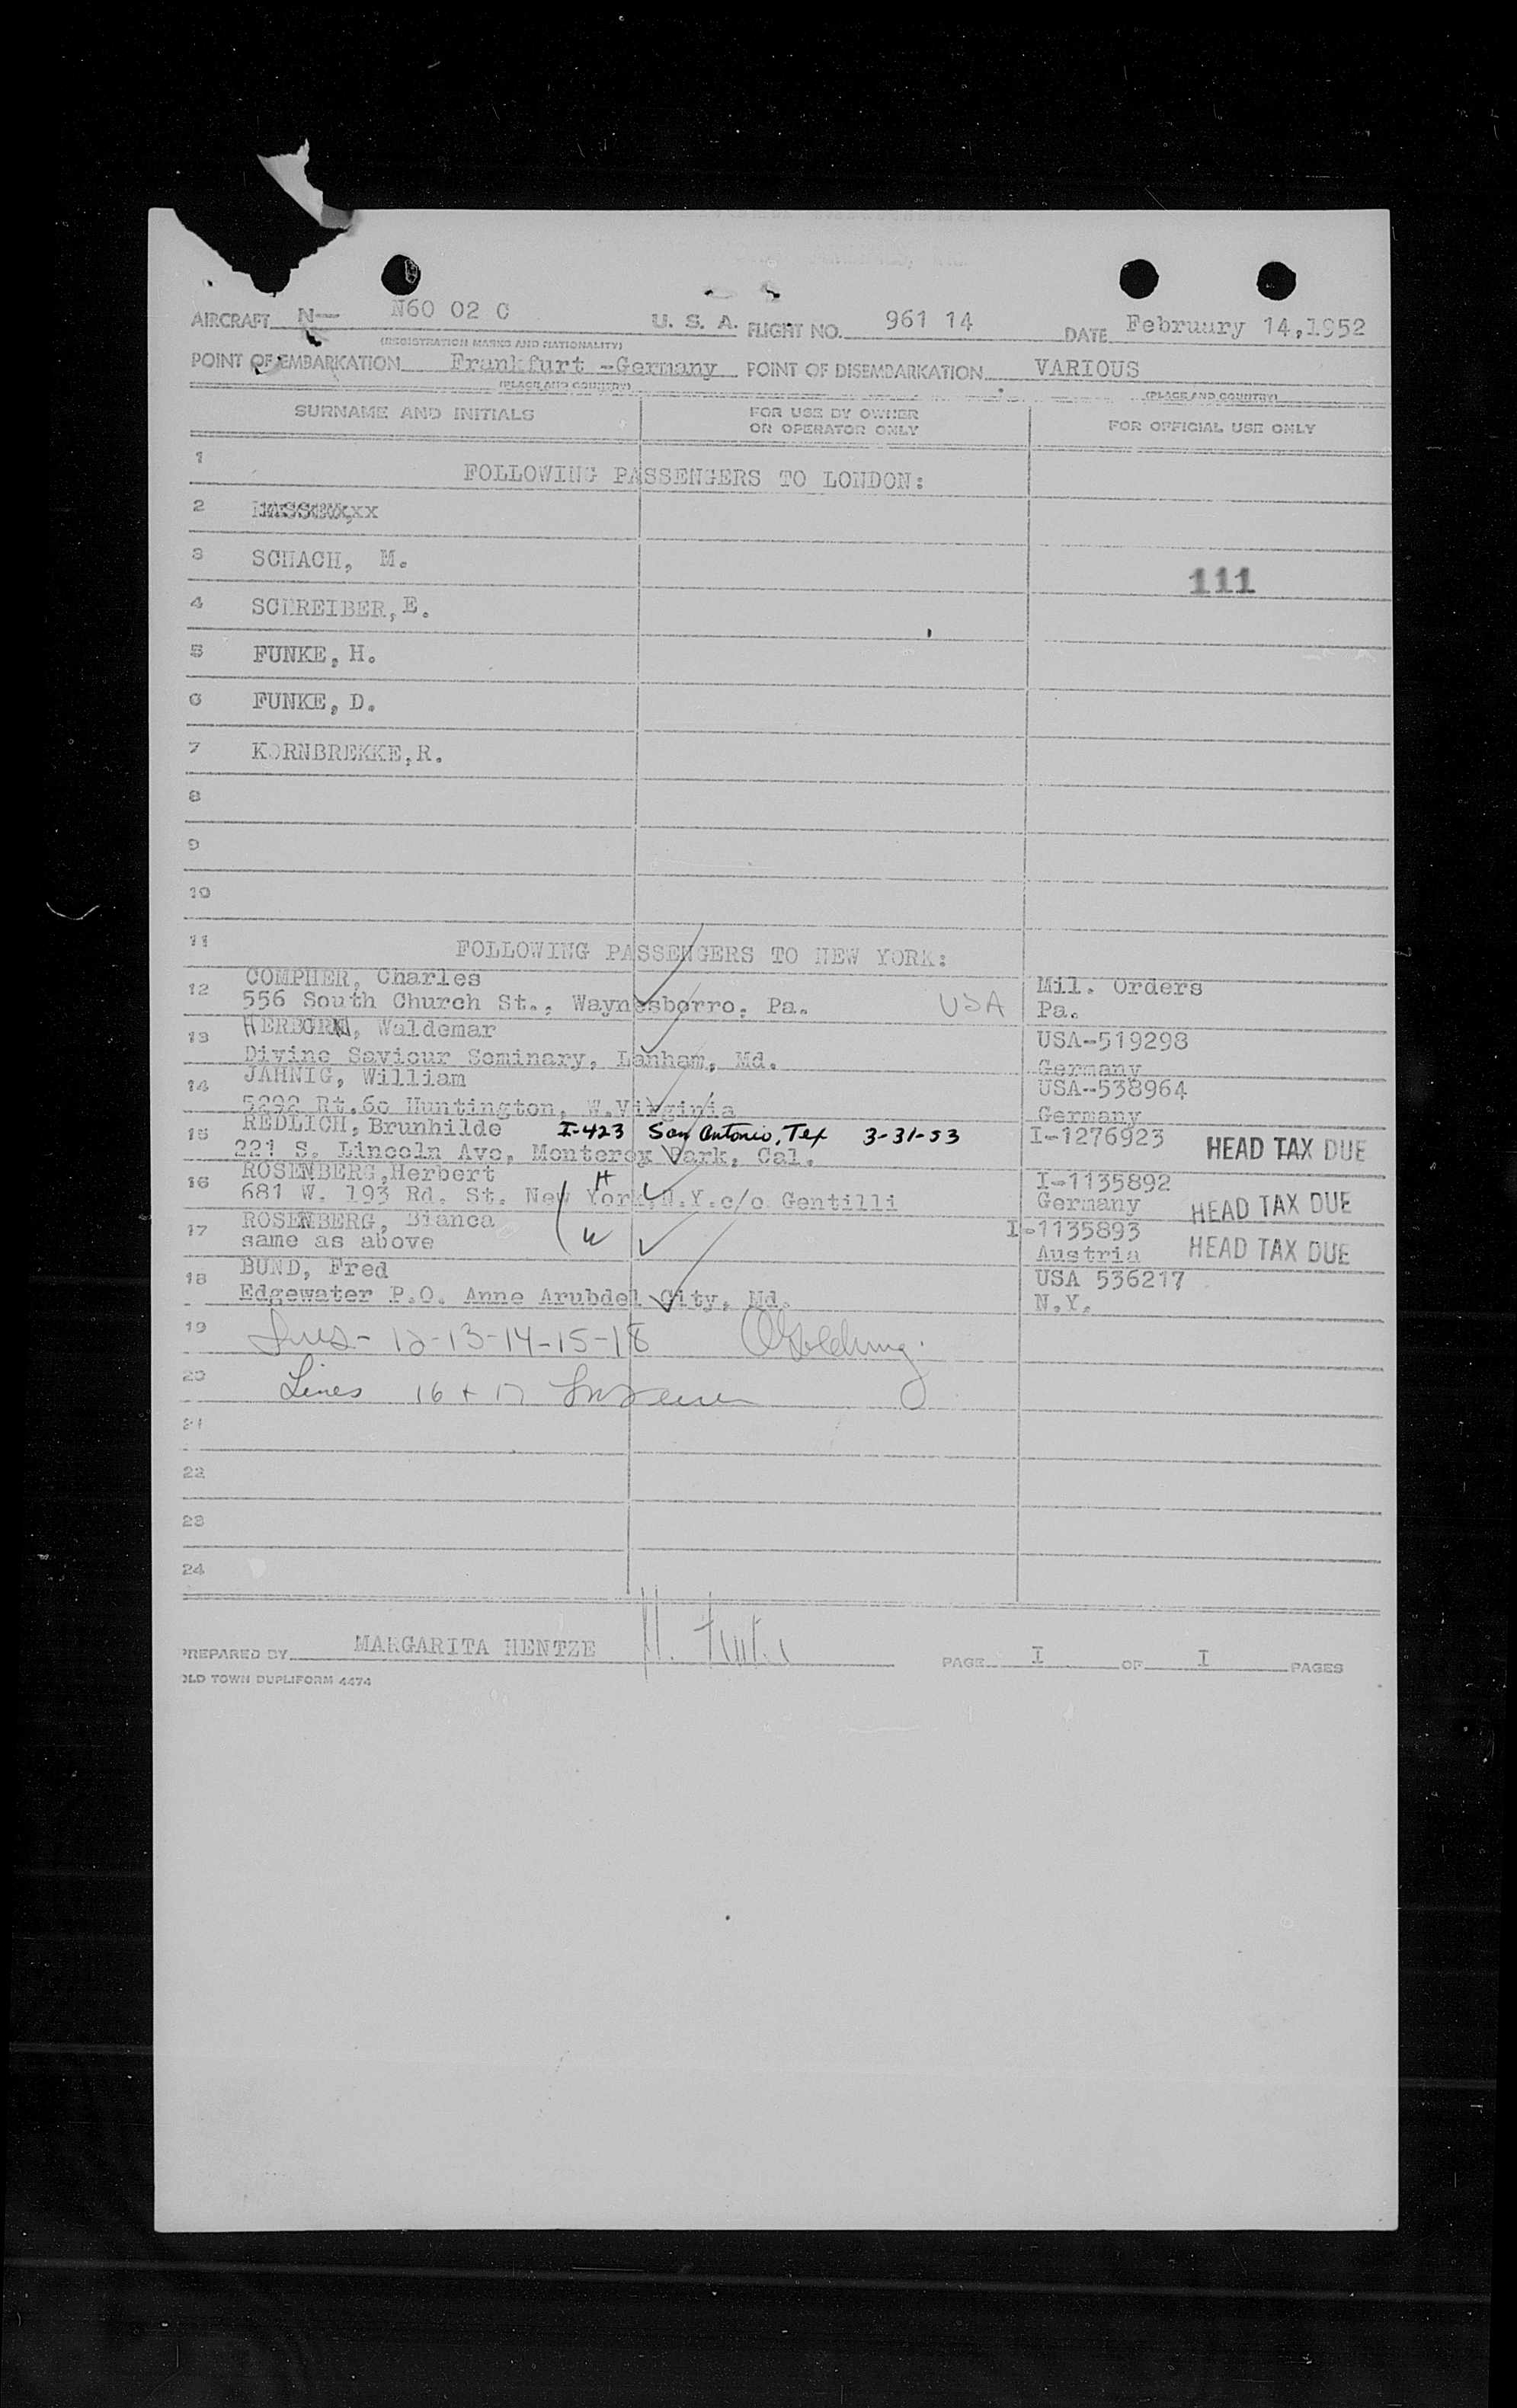 AIRCRAFT N— N60 02 C U. S. A. FLIGHT NO. 961 14 DATE February 14,1952
(REGISTRATION MARKS AND NATIONALITY)
POINT OF EMBARKATION Frankfurt -Germany POINT OF DISEMBARKATION VARIOUS
(PLACE AND COUNTRY) (PLACE AND COUNTRY)
SURNAME AND INITIALS FOR USE BY OWNER OR OPERATOR ONLY FOR OFFICIAL USE ONLY
1 FOLLOWING PASSENGERS TO LONDON:
2
3 SCHACH, M.
111
4 SCHREIBER, E.
5 FUNKE, H.
6 FUNKE, D.
7 KORNBREKKE, R.
8
9
10
11 FOLLOWING PASSENGERS TO NEW YORK:
12 COMPHER, Charles Mil. Orders
556 South Church St., Waynesborro, Pa. USA Pa.
13 Waldemar USA-519298
Divine Saviour Seminary, Lanham, Md. Germany
14 JAHNIG, William USA-538964
5292 Rt.60 Huntington, W.Virginia Germany
15 REDLICH, Brunhilde I-423 San Antonio, Tex 3-31-53 I-1276923 HEAD TAX DUE
221 S. Lincoln Ave, Monterey Park, Cal.
16 ROSENBERG, Herbert H I-1135892
681 W. 193 Rd. St. New York, N.Y. c/o Gentilli Germany HEAD TAX DUE
17 ROSENBERG, Bianca W I-1135893
same as above Austria HEAD TAX DUE
18 BUND, Fred USA 536217
Edgewater P.O. Anne Arubdel City, Md. N.Y.
19 12-13-14-15-18
20 Lines 16 + 17
21
22
23
24
PREPARED BY MARGARITA HENTZE PAGE I OF I PAGES
OLD TOWN DUPLIFORM 4474